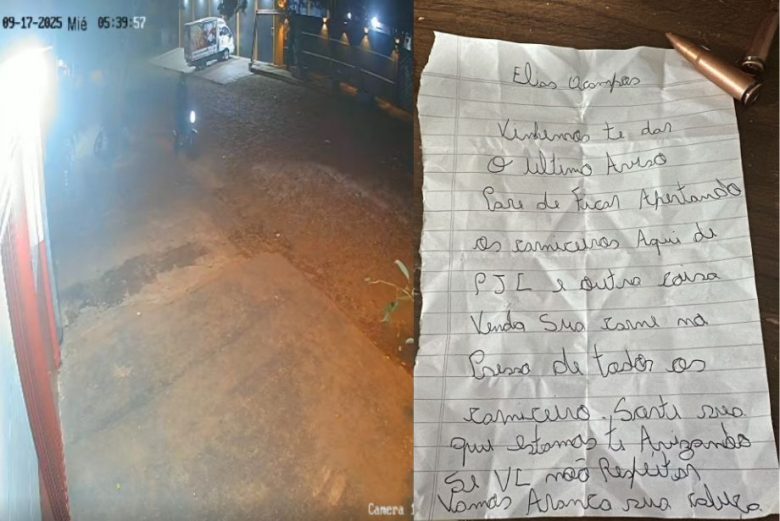 09-17-2025 Mié 05:39:57
Camera 1
Elias Ocampos
Vinhemos te dar
O ultimo Aviso
Pare de Ficar Apertando
os carniceiros Aqui de
PJC e outra coisa
Venda Sua carne no
Preso de todos os
carniceiro. Sorte sua
que estamos ti Avizando
Se VC não Respeitar
Vamos Aranca sua cabeza